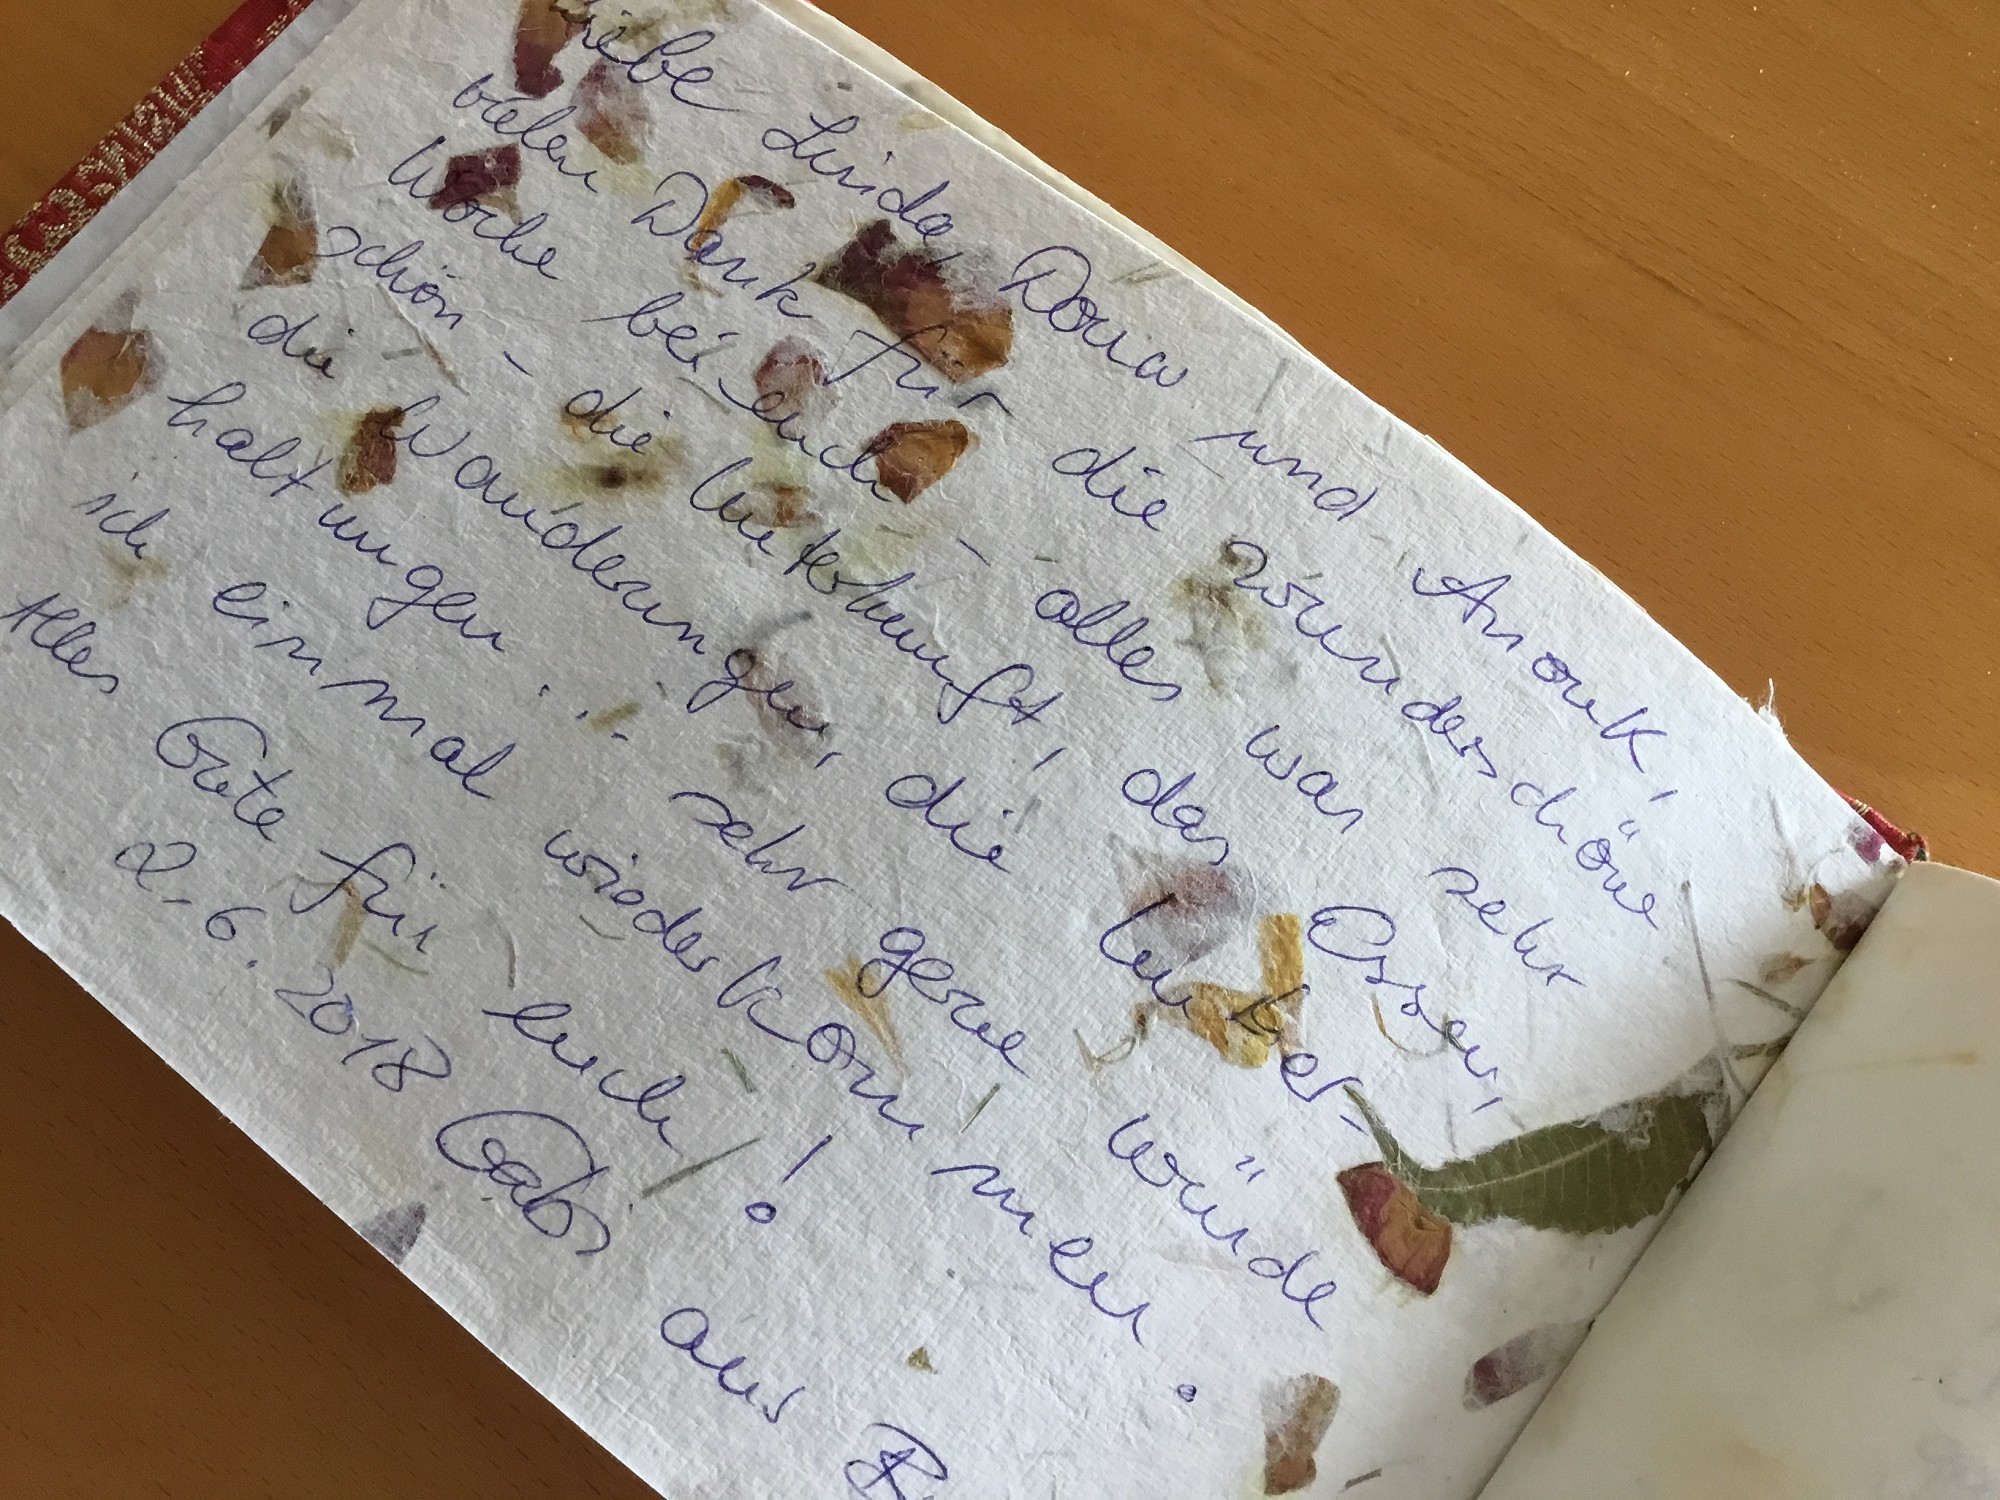 Liebe Linda, Doria und Anouk,
vielen Dank für die wunderschöne
Woche bei euch - alles war sehr
schön - die Unterkunft, das Essen,
die Wanderungen, die Unter-
haltungen ... sehr gerne würde
ich einmal wiederkommen.
Alles Gute für Euch!
2.6.2018 Gabi aus